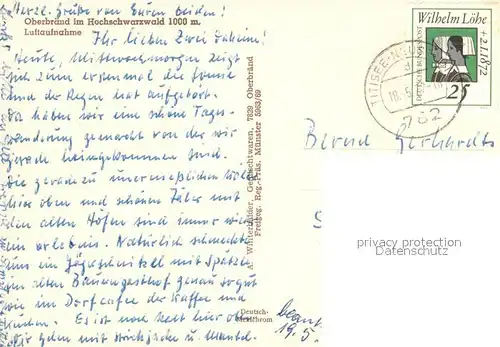 Herzl. Grüße von Euren beiden!
Oberbränd im Hochschwarzwald 1000 m.
Luftaufnahme
Ihr lieben Zwei daheim!
Heute, Mittwochmorgen zeigt
sich zum erstenmal die Sonne
und der Regen hat aufgehört.
Da haben wir eine schöne Tages-
wanderung gemacht von der wir
gerade heimgekommen sind.
Die geradezu unermeßlichen
hier oben und schönen Täler mit
den alten Höfen sind immer wieder
ein Erlebnis. Natürlich schmeckt
uns ein Jägerschnitzel mit Spätzle
im alten Bauerngasthof genau so gut
wie im Dorfcafee der Kaffee und
Kuchen. Es ist noch kalt hier oben
Wir gehen mit Strickjacke u. Mantel.
A. Winterhalder, Gemischtwaren, 7829 Oberbränd
Freigeg. Reg.-Präs. Münster 5963/69
Deutsch-
19.5.
Wilhelm Löhe
+2.1.1872
DEUTSCHE BUNDESPOST
25
TITISEE-NEU
18.5.
782
Bernd Gerhardts
privacy protection
Datenschutz